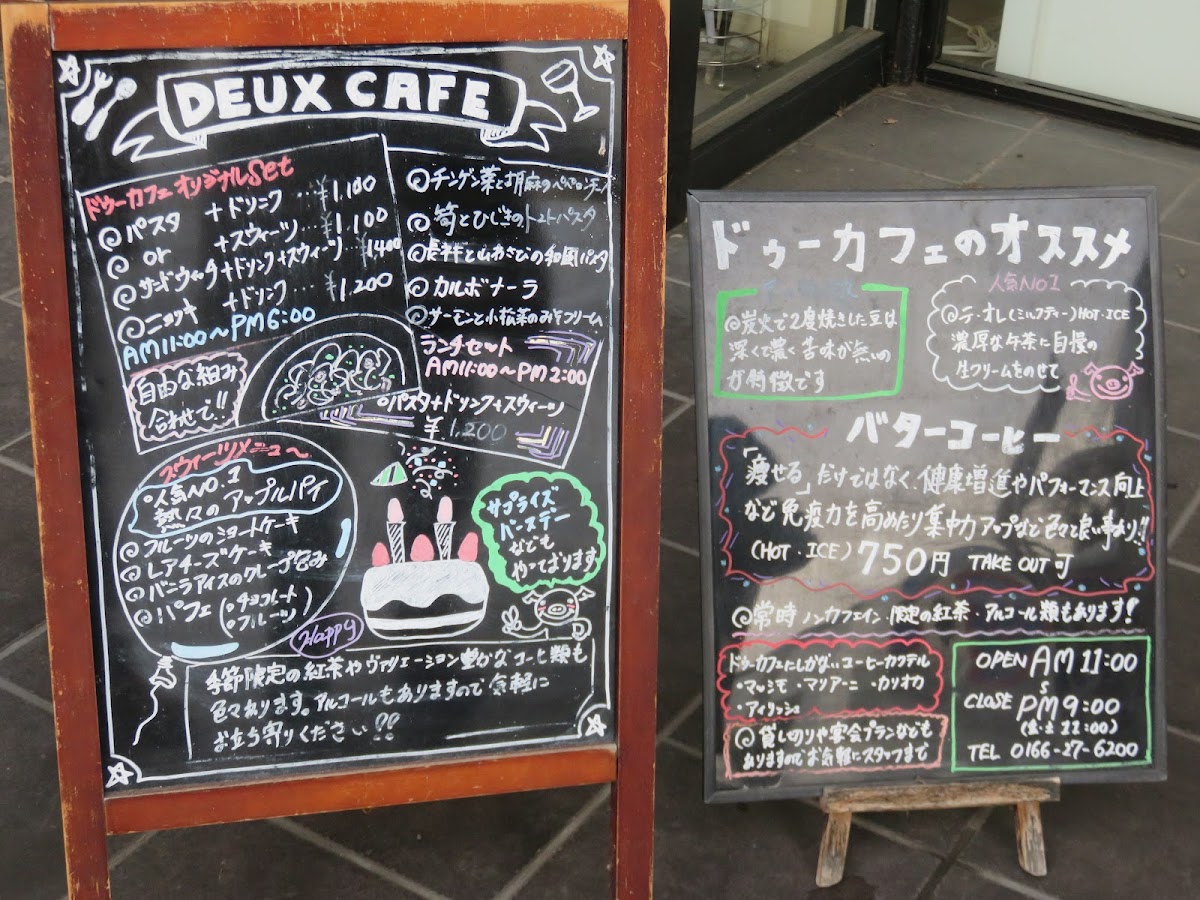 DEUX CAFE
ドゥーカフェ オリジナル Set
◎パスタ +ドリンク …¥1,100
◎ or +スウィーツ …¥1,100
サンドウィッチ+ドリンク+スウィーツ ¥1,400
◎ニョッキ +ドリンク …¥1,200
AM11:00〜PM6:00
自由な組み
合わせで!!
◎チンゲン菜と胡麻のペペロンチーノ
◎筍とひじきのトマトパスタ
◎長芋と山わさびの和風パスタ
◎カルボナーラ
◎サーモンと小松菜のみそクリーム
ランチセット
AM11:00〜PM2:00
○パスタ+ドリンク+スウィーツ
¥1,200
スウィーツメニュー〜
○人気NO.1
熱々のアップルパイ
◎フルーツのショートケーキ
◎レアチーズケーキ
◎バニラアイスのクレープ包み
◎パフェ(○チョコレート
○フルーツ)
Happy
サプライズ
バースデー
なども
やっております
季節限定の紅茶やヴァリエーション豊かなコーヒー類も
色々あります。アルコールもありますので気軽に
お立ち寄りください!!
ドゥーカフェのオススメ
◎炭火で2度焼きした豆は
深くて濃く苦味が無いの
が特徴です
人気NO1
◎テ・オレ(ミルクティー)HOT・ICE
濃厚な牛茶に自慢の
生クリームをのせて
バターコーヒー
「痩せる」だけではなく、健康増進やパフォーマンス向上
など免疫力を高めたり集中力アップなど色々と良い事あり!!
(HOT・ICE) 750円 TAKE OUT 可
◎常時 ノンカフェイン・限定の紅茶・アルコール類もあります!
ドゥーカフェにしかないコーヒーカクテル
・マッシモ ・マリアーニ ・カリオカ
・アイリッシュ
◎貸し切りや宴会プランなども
ありますのでお気軽にスタッフまで
OPEN AM 11:00
CLOSE PM 9:00
(金・土 11:00)
TEL 0166-27-6200